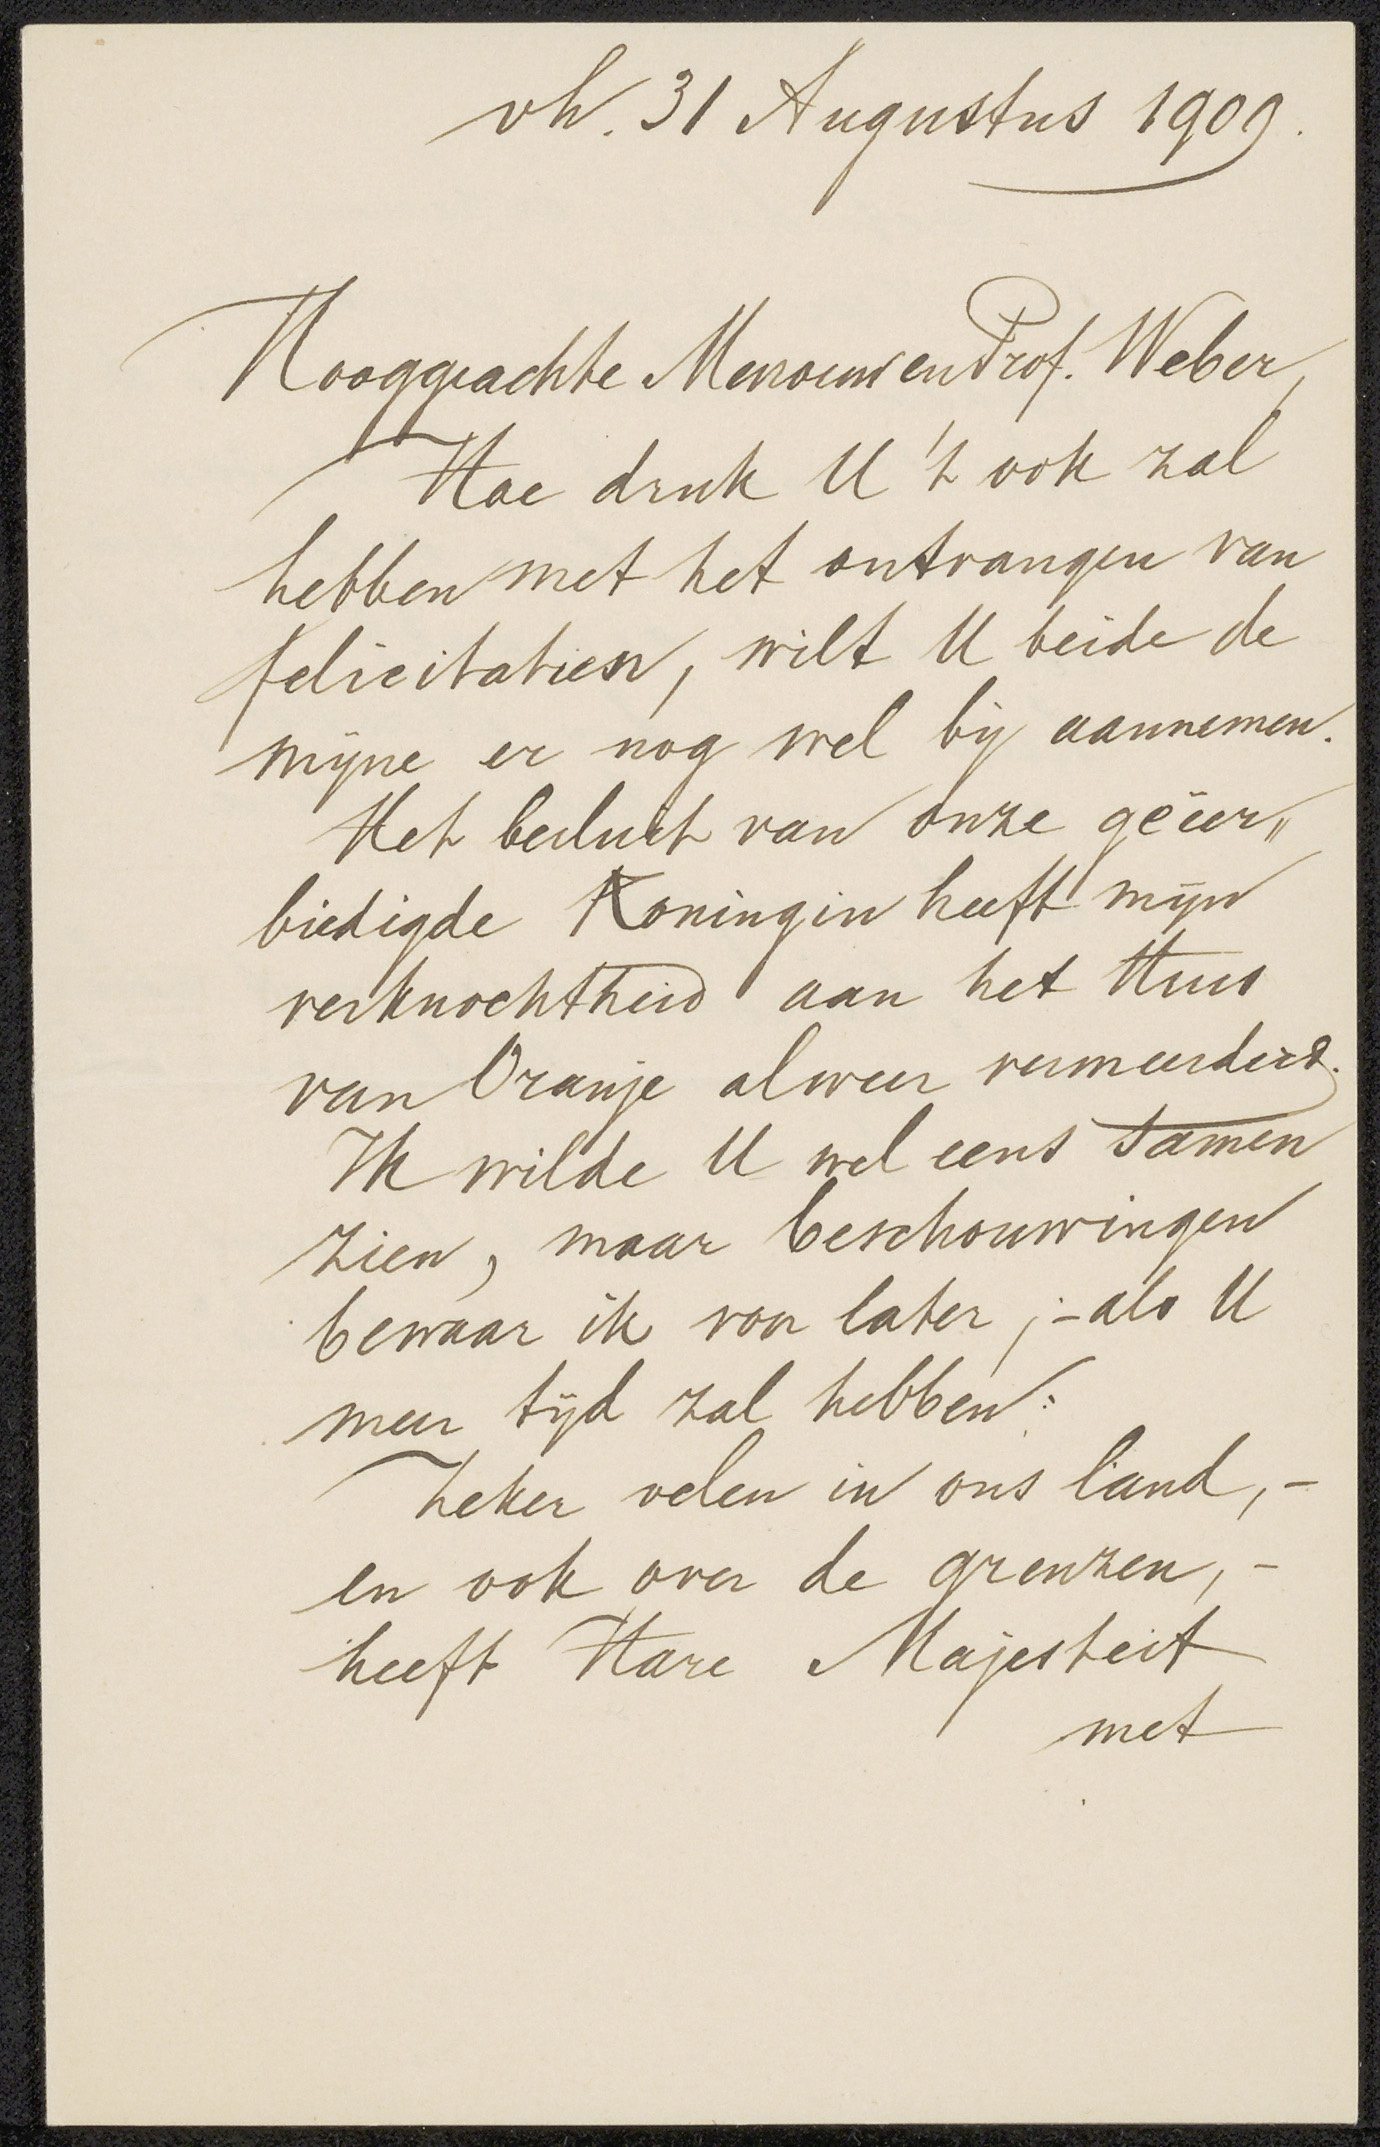 vh. 31 Augustus 1909.
Hooggeachte Mevrouw en Prof. Weber,
Hoe druk U 't ook zal
hebben met het ontvangen van
felicitatien, wilt U beide de
mijne er nog wel bij aannemen.
Het besluit van onze geëer„
biedigde Koningin heeft mijn
verknochtheid aan het Huis
van Oranje alweer vermeerderd.
Ik wilde U wel eens samen
zien, maar beschouwingen
bewaar ik voor later, :- als U
meer tijd zal hebben:
Zeker velen in ons land, -
en ook over de grenzen, -
heeft Hare Majesteit
met